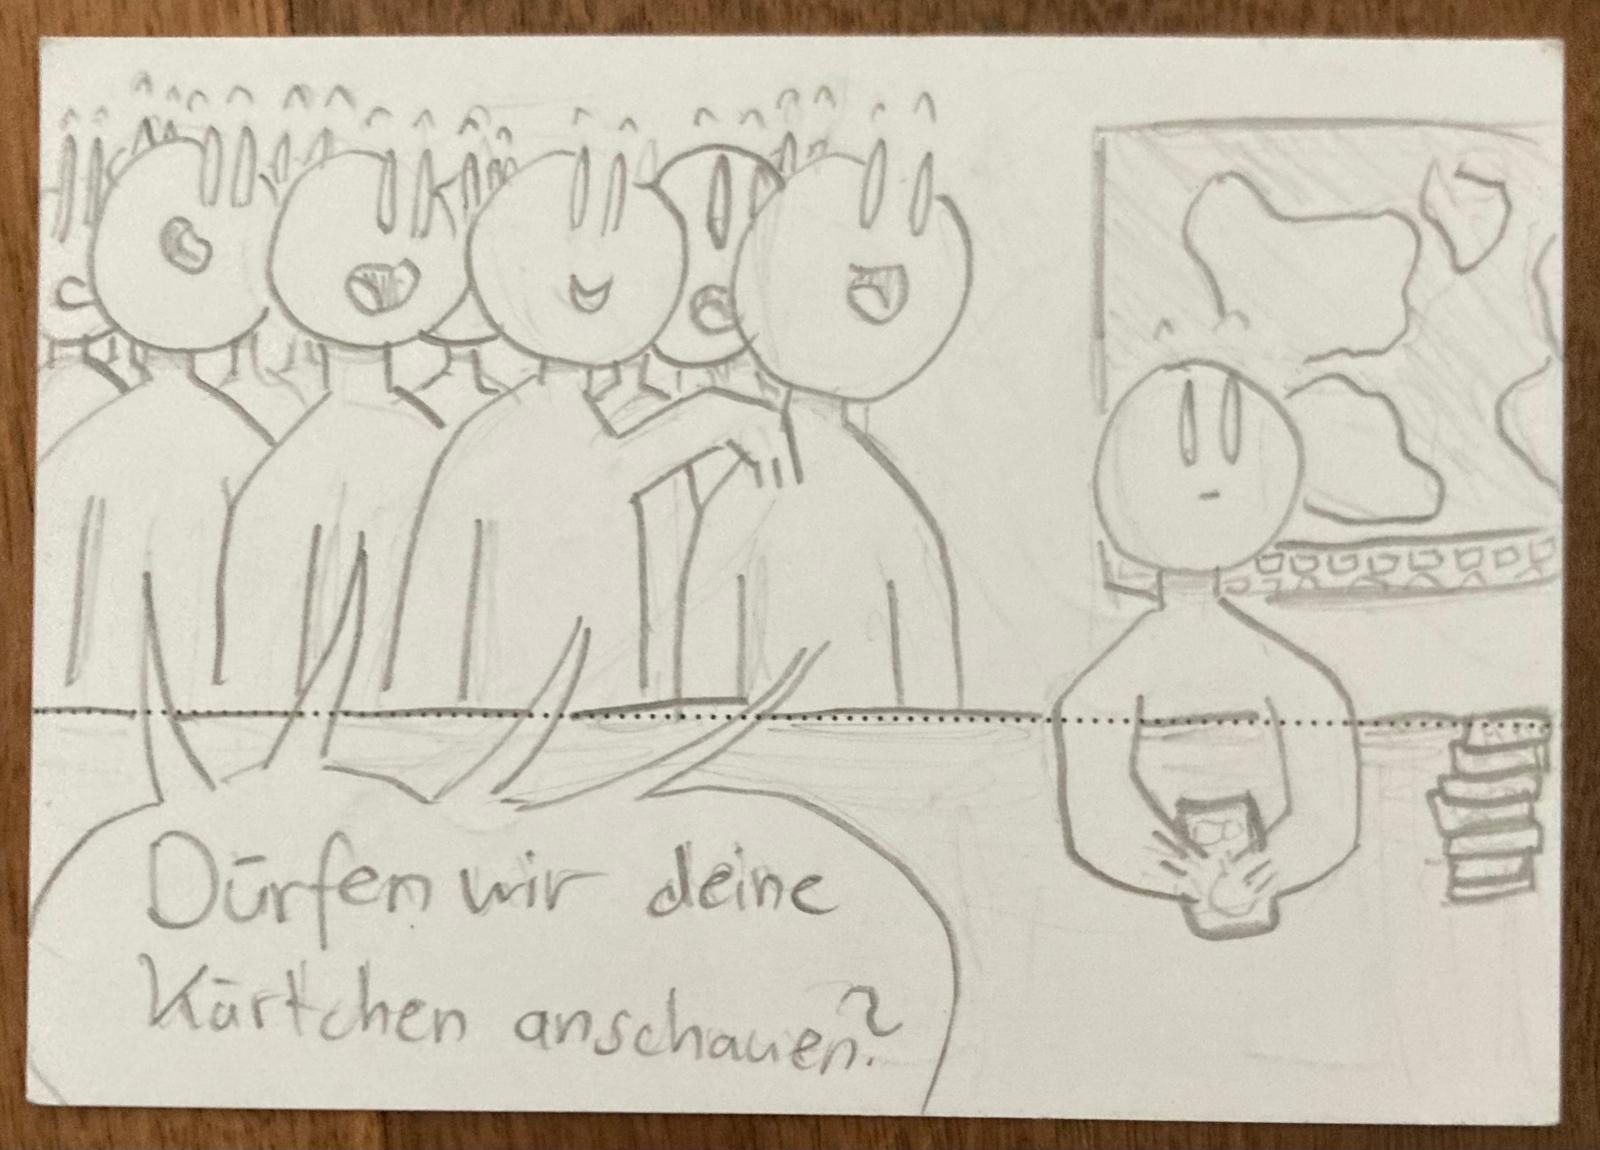 Dürfen wir deine
Kärtchen anschauen?